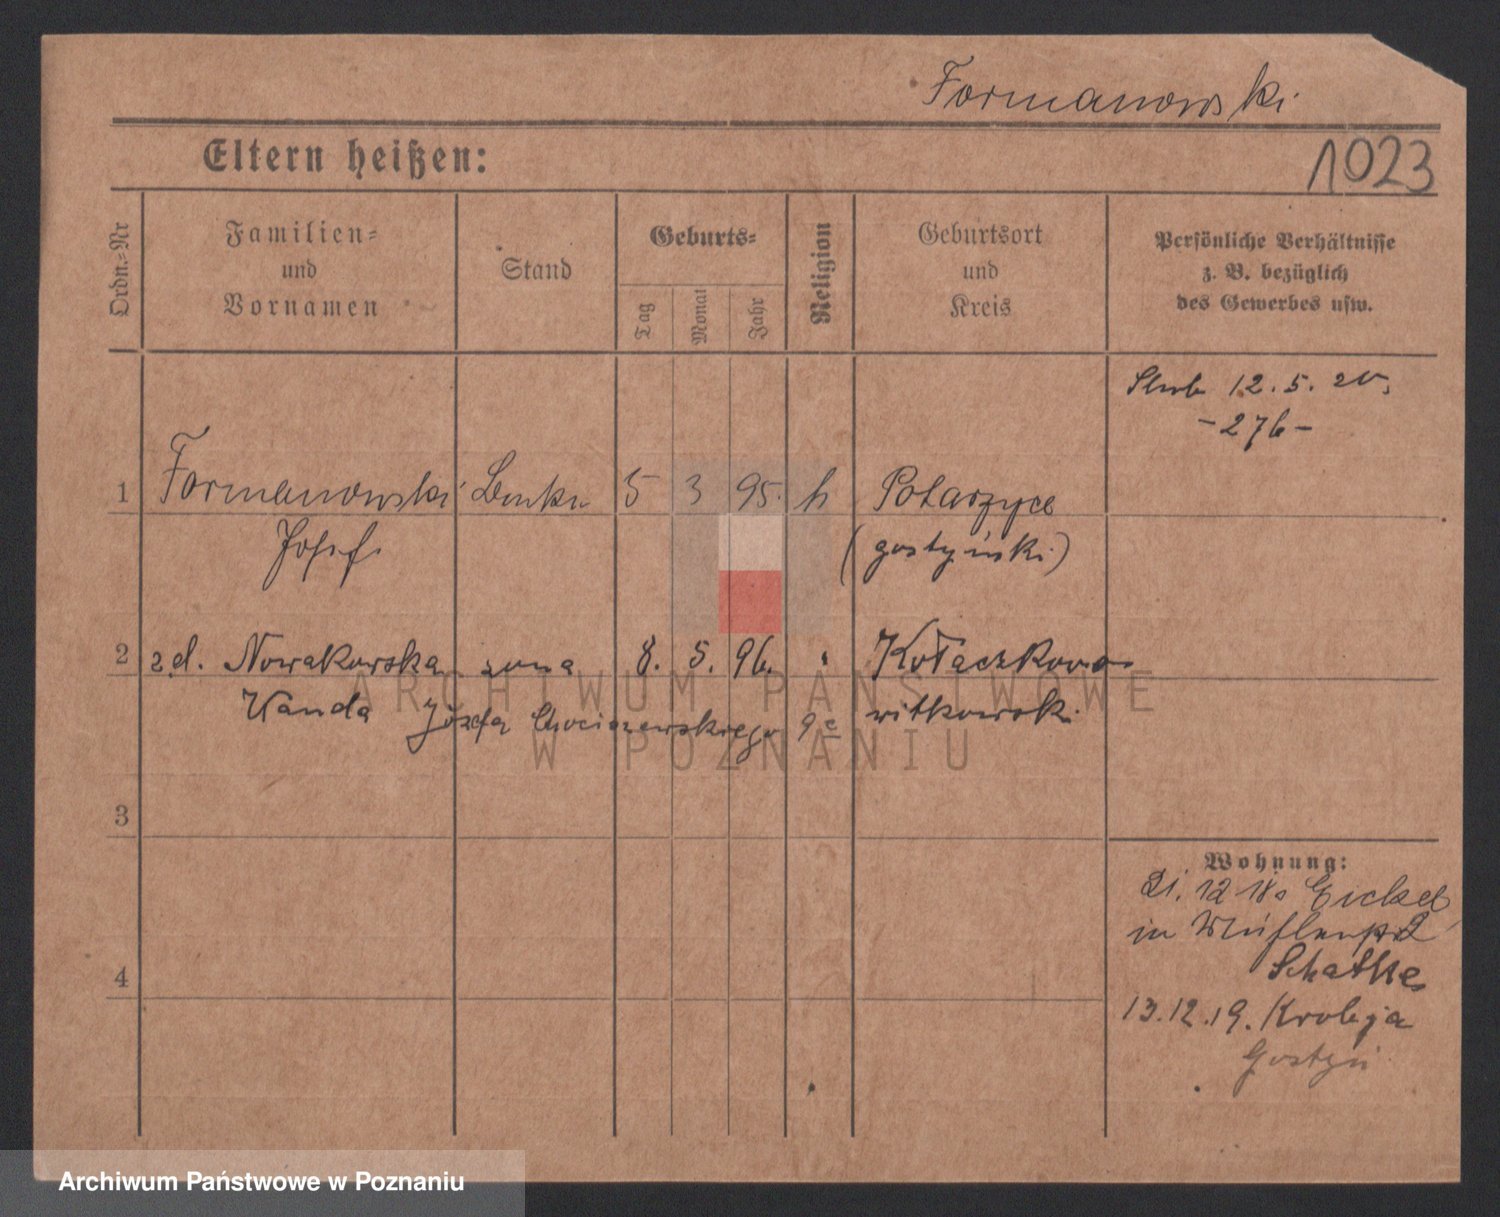 Formanowski
Eltern heißen:
1023
Ordn.-Nr
Familien-
und
Vornamen
Stand
Geburts-
Tag
Monat
Jahr
Religion
Geburtsort
und
Kreis
Persönliche Verhältnisse
z. B. bezüglich
des Gewerbes usw.
12.5.20.
-276-
1 Formanowski 5 3 95. k Potarzyce
Josef. (gostyński)
2 zd. Nowakowska żona 8. 5. 96. Kołaczkowo
Wanda Józefa Chociszewskiego witkowski.
3
Wohnung:
21. 12 18. Eickel
in
4
13.12.19. Krobja
Gostyń
ARCHIWUM PAŃSTWOWE
W POZNANIU
Archiwum Państwowe w Poznaniu